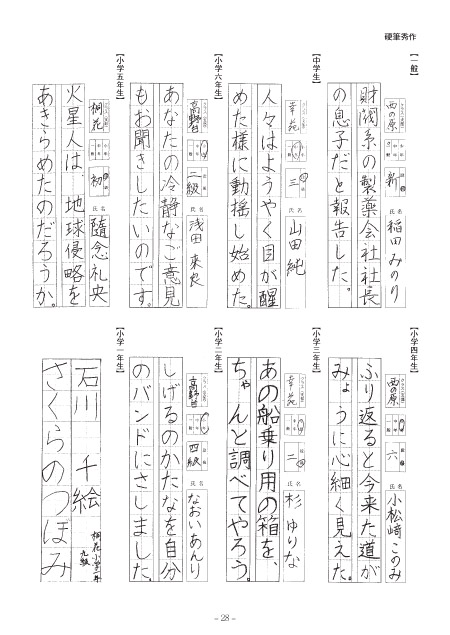 硬筆秀作
【一般】
西の原 新 稲田 みのり
財閥系の製薬会社社長
の息子だと報告した。
【中学生】
幸苑 三 山田 純
人々はようやく目が醒
めた様に動揺し始めた。
【小学六年生】
高野台 二級 浅田 来良
あなたの冷静なご意見
もお聞きしたいのです。
【小学五年生】
桐花 初 隨念 礼央
火星人は、地球侵略を
あきらめたのだろうか。
【小学四年生】
西の原 六 小松崎 このみ
ふり返ると今来た道が
みょうに心細く見えた。
【小学三年生】
幸苑 二 杉 ゆりな
あの船乗り用の箱を、
ちゃんと調べてやろう。
【小学二年生】
高野台 四級 なおい あんり
しげるのかたなを自分
のバンドにさしました。
【小学一年生】
桐花小一年
九級
石川 千絵
さくらのつぼみ
- 28 -